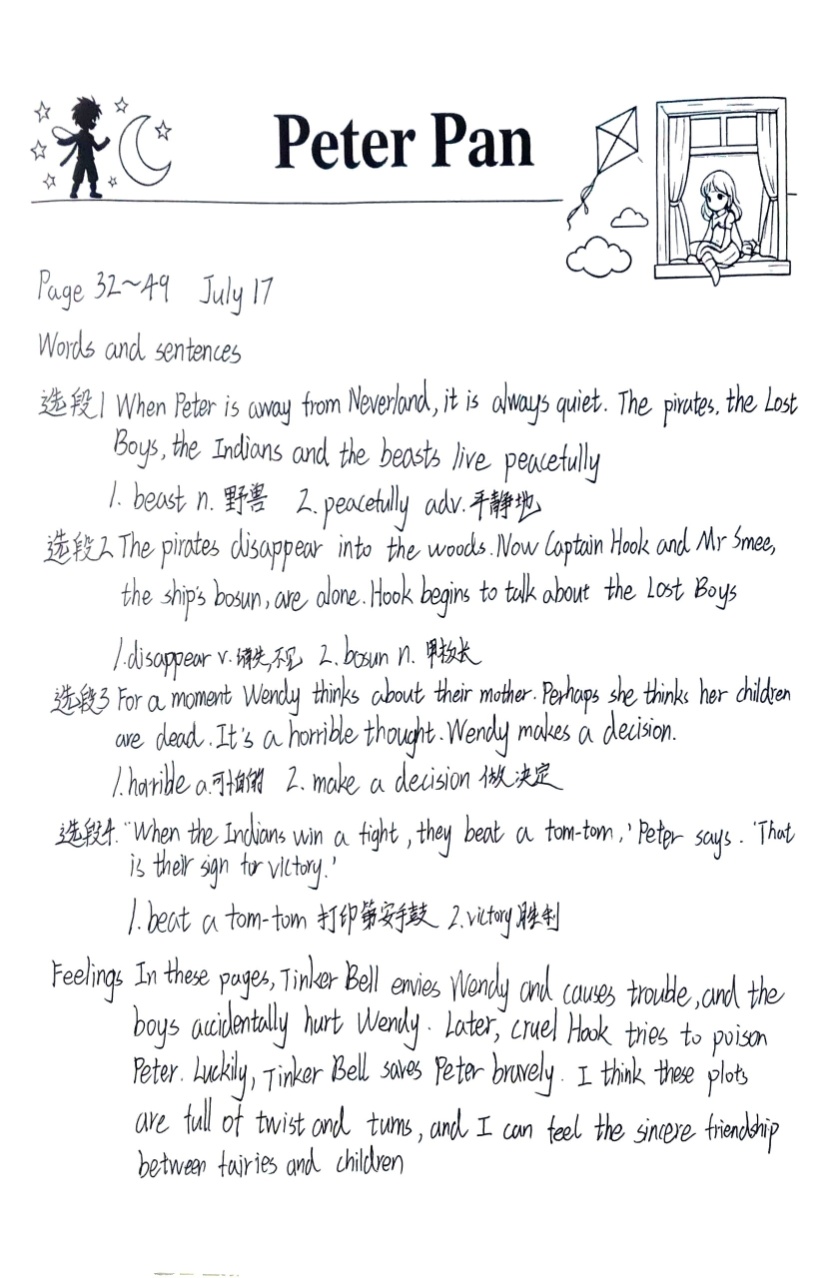 Peter Pan
Page 32~49 July 17
Words and sentences
选段1 When Peter is away from Neverland, it is always quiet. The pirates, the Lost
Boys, the Indians and the beasts live peacefully
1. beast n. 野兽 2. peacefully adv. 平静地
选段2 The pirates disappear into the woods. Now Captain Hook and Mr Smee,
the ship's bosun, are alone. Hook begins to talk about the Lost Boys
1. disappear v. 消失,不见 2. bosun n. 甲板长
选段3 For a moment Wendy thinks about their mother. Perhaps she thinks her children
are dead. It's a horrible thought. Wendy makes a decision.
1. horrible a. 可怕的 2. make a decision 做决定
选段4. "When the Indians win a fight, they beat a tom-tom,' Peter says. 'That
is their sign for victory.'
1. beat a tom-tom 打印第安手鼓 2. victory 胜利
Feelings In these pages, Tinker Bell envies Wendy and causes trouble, and the
boys accidentally hurt Wendy. Later, cruel Hook tries to poison
Peter. Luckily, Tinker Bell saves Peter bravely. I think these plots
are full of twist and turns, and I can feel the sincere friendship
between fairies and children